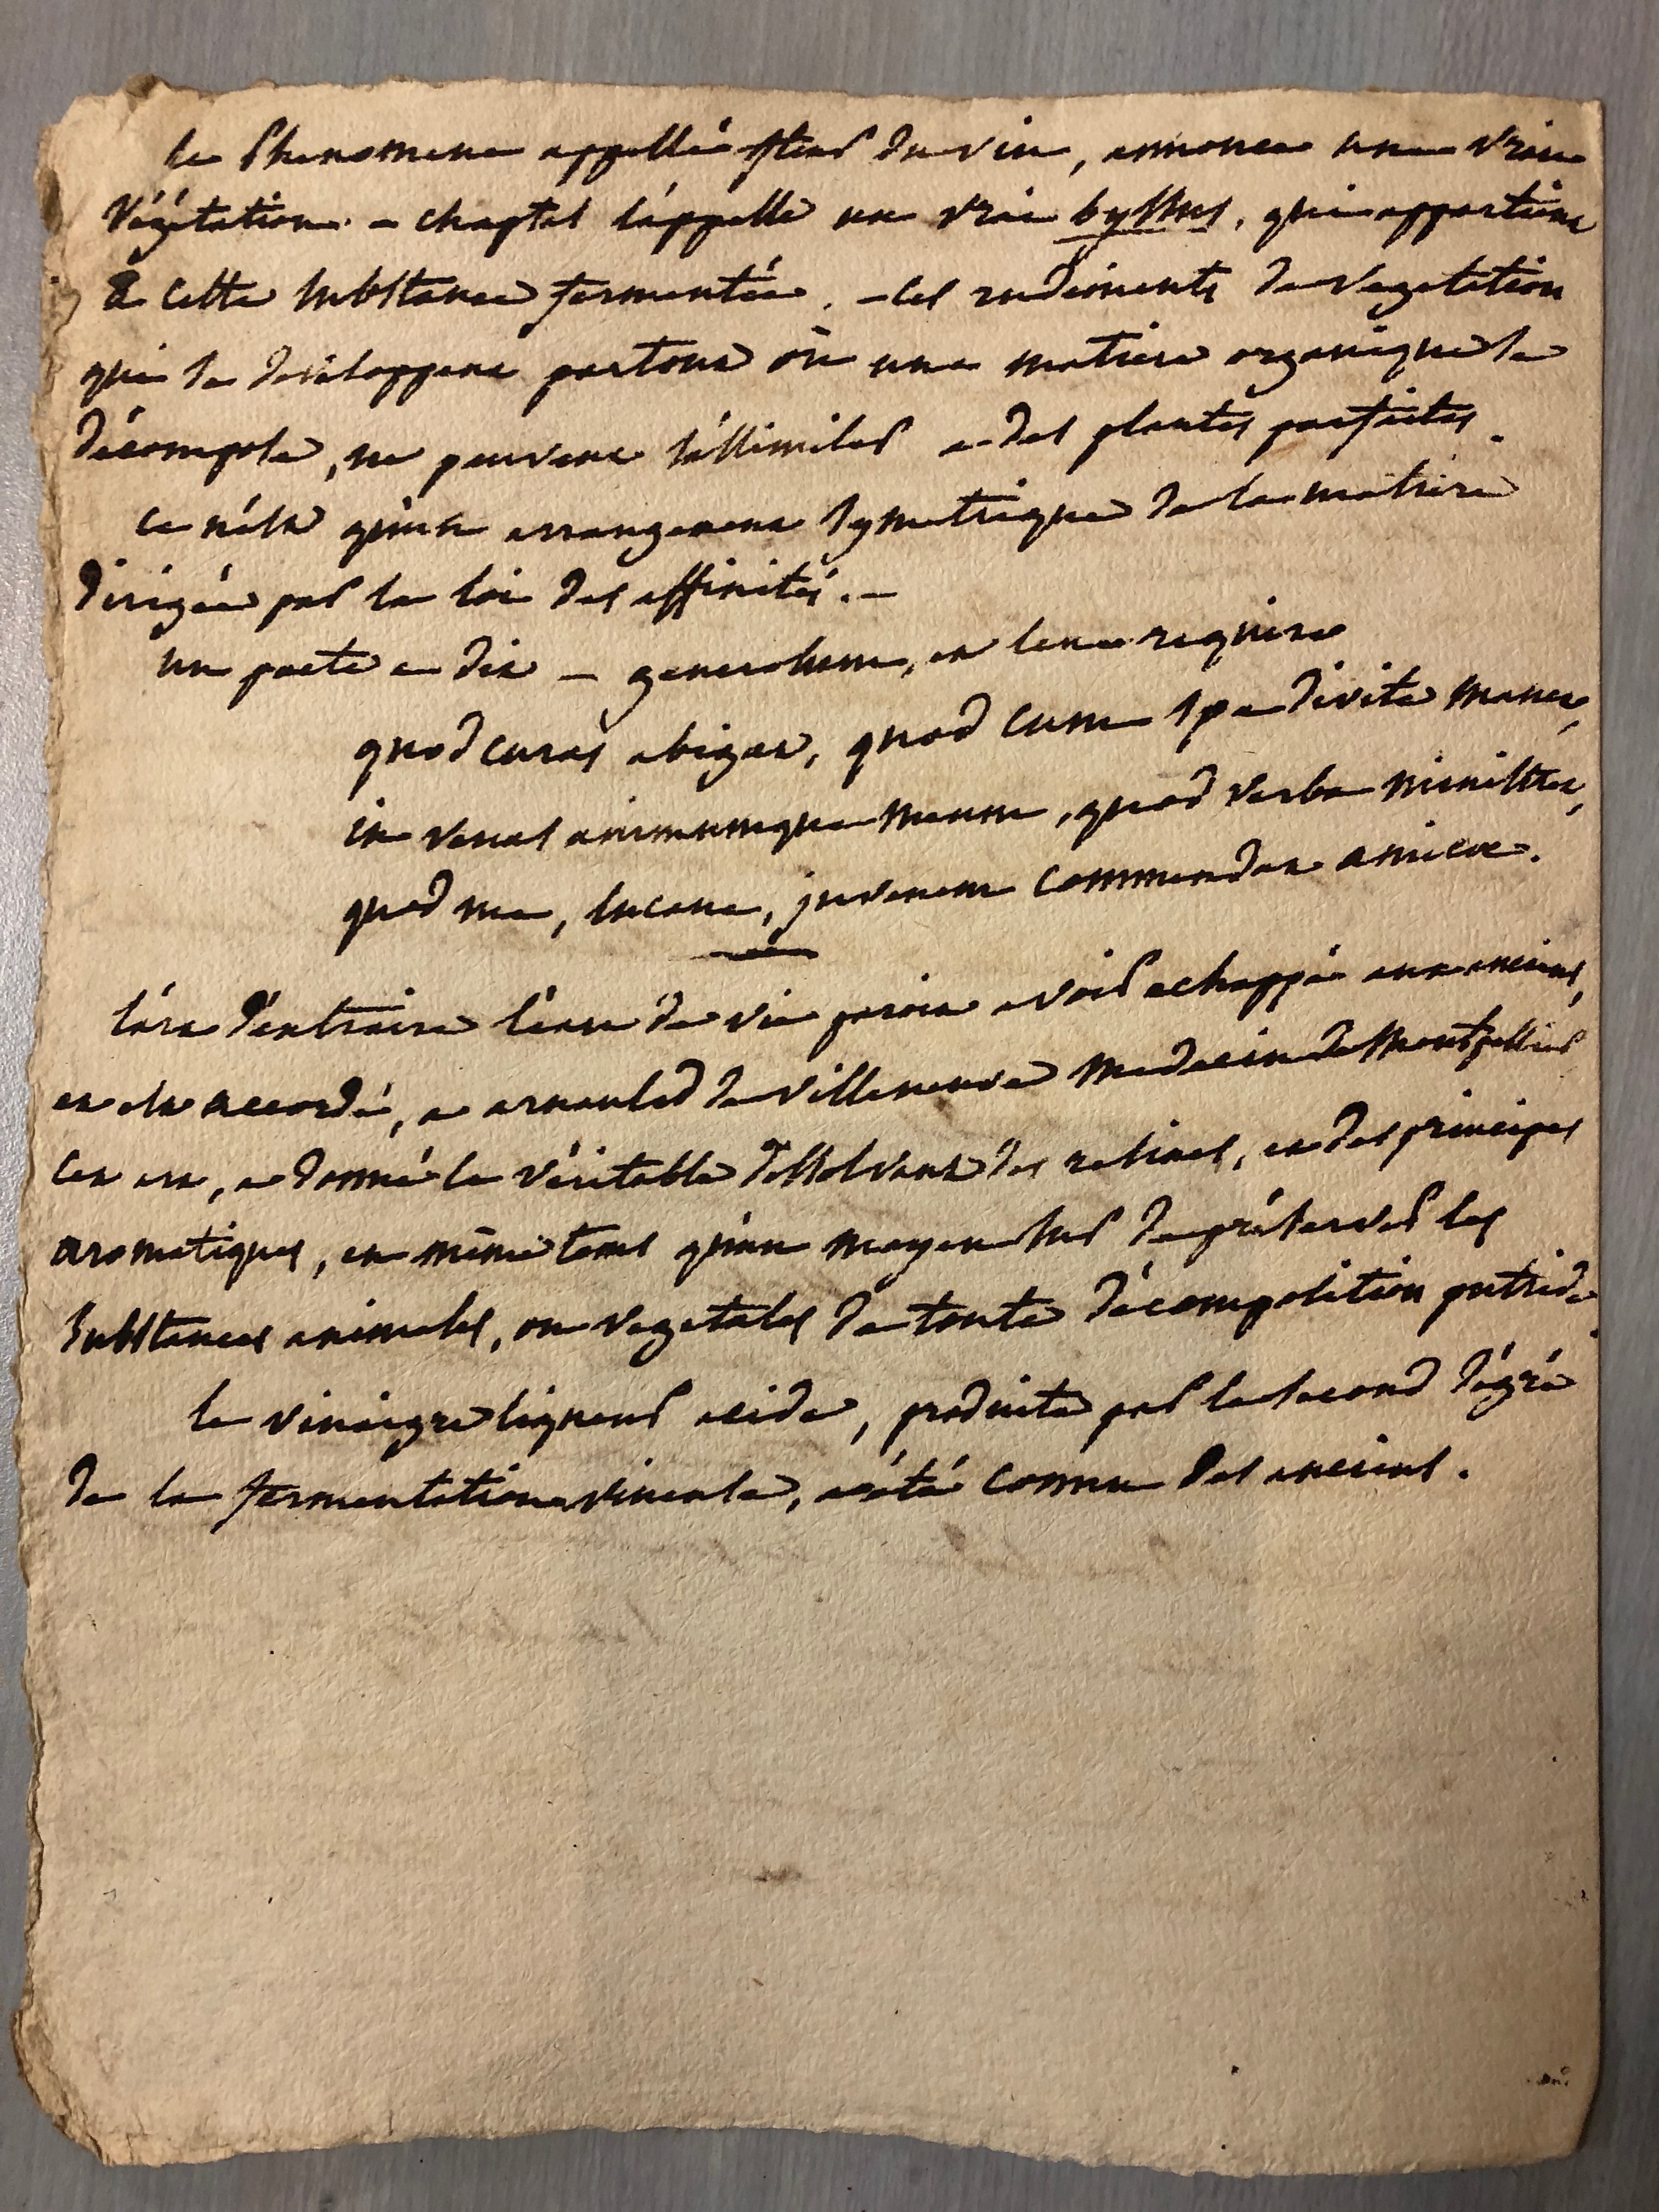 le phenomene appellé fleur du vin, annonce une vraie
végétation. - chaptal l'appelle un vrai byssus, qui appartient
à cette substance fermentée. - ces rudiments de vegetation
qui se développent partout où une matiere organique se
décompose, ne peuvent s'assimiler a des plantes parfaites.
ce n'est qu'un arrangement symetrique de la matiere
dirigée par la loi des affinités. -
un poete a dit - generosum, et lene requiro
quod curas abigat, quod cum spe divite manet,
in venas animumque meum, quod verba ministret,
quod me, lucanæ, juvenem commendet amicæ.
l'art d'extraire l'eau de vie paroit avoir echappé aux anciens,
et est accordé, a arnauld de villeneuve medecin de Montpellier
cet art, a donné le véritable dissolvant des resines, et des principes
aromatiques, en même tems qu'un moyen sur de préserver les
substances animales, ou vegetales de toute décomposition putride
le vinaigre liqueur acide, produite par le second dégré
de la fermentation vineuse, a été connu des anciens.